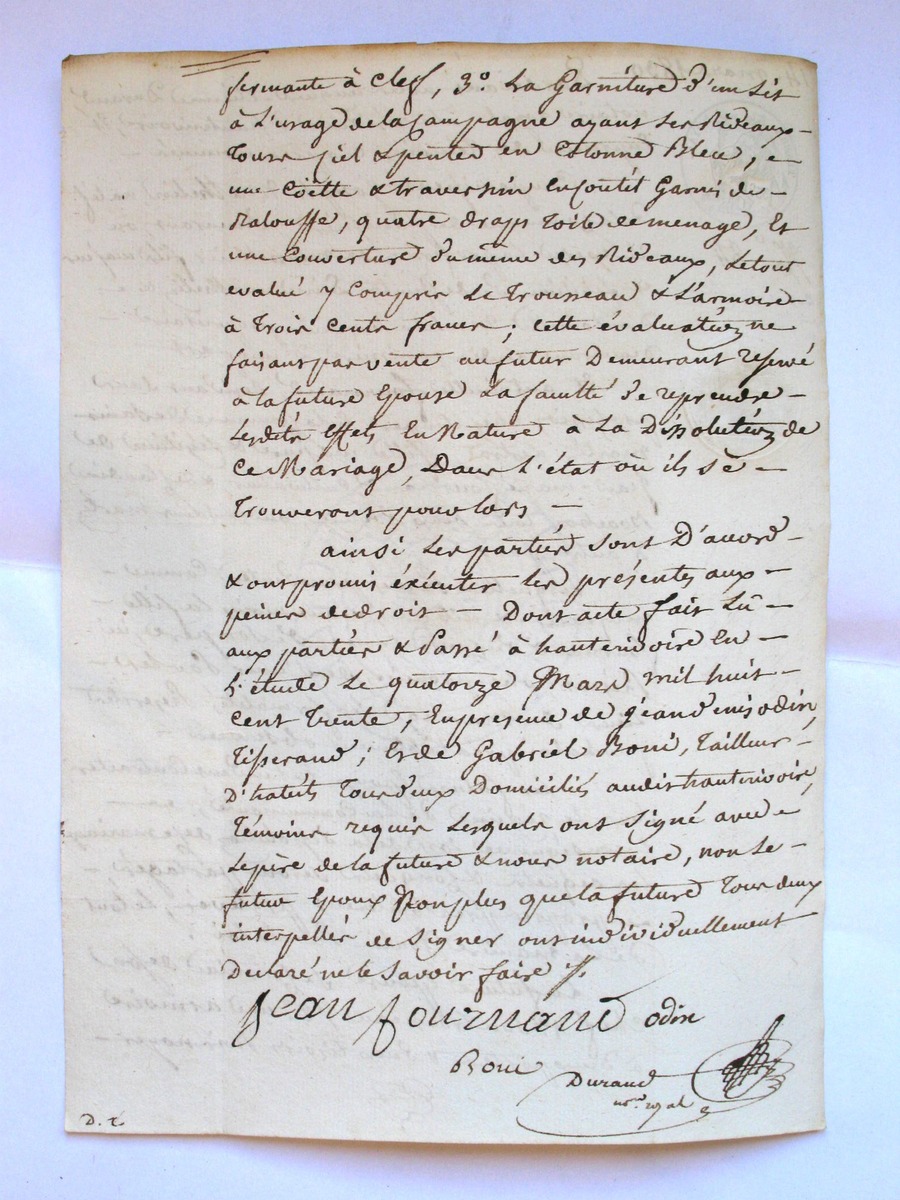 fermante à Clef, 3.° La Garniture d'un Lit
à L'usage de la Campagne ayant Ses Rideaux
Tours Ciel & pentes en Cotonne Bleu,
une Coëtte & traversin en Coutit Garnis de
Balouffe, quatre draps Toile de menage, Et
une Couverture du même des Rideaux, Le tout
evalué y Compris Le Trousseau & L'armoire
à Trois Cents francs; Cette évaluation ne
faisant pas vente au futur Demeurant reservé
à la future Epouse La faculté de reprendre
Lesdits Effets En Nature à La Dissolution de
Ce Mariage, Dans L'état où ils Se
Trouveront pour lors
ainsi Les parties Sont D'accord
& ont promis éxécuter Les présentes aux
peines de droit — Dont acte fait Lû
aux parties & Passé à hauterivoire En
L'étude Le quatorze Mars mil huit
Cent Trente, En presence de Jean denis odin,
Tisserand; Et de Gabriel Boni, Tailleur
D'habits Tous deux Domiciliés audit hauterivoire,
Témoins requis Lesquels ont Signé avec
Le père de la future & nous notaire, non Le
futur Epoux Non plus que la future Tous deux
interpellés de Signer ont individuellement
Declaré ne le Savoir faire
Jean fournand odin
Boni
Durand
not.re royal
D. t.